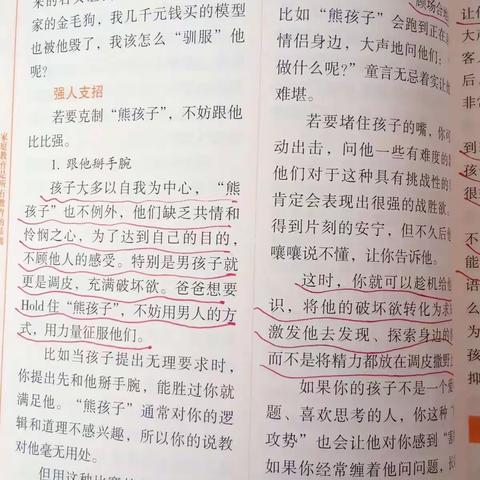 家的金毛狗，我几千元钱买的模型
也被他毁了，我该怎么“驯服”他
呢？
强人支招
若要克制“熊孩子”，不妨跟他
比比强。
1. 跟他掰手腕
孩子大多以自我为中心，“熊
孩子”也不例外，他们缺乏共情和
怜悯之心，为了达到自己的目的，
不顾他人的感受。特别是男孩子就
更是调皮，充满破坏欲。爸爸想要
Hold 住“熊孩子”，不妨用男人的方
式，用力量征服他们。
比如当孩子提出无理要求时，
你提出先和他掰手腕，能胜过你就
满足他。“熊孩子”通常对你的逻
辑和道理不感兴趣，所以你的说教
对他毫无用处。
顾场合
比如“熊孩子”会跑到正在
情侣身边，大声地问他们：
做什么呢？”童言无忌着实让
难堪。
若要堵住孩子的嘴，你可
动出击，问他一些有难度的
他们对于这种具有挑战性的
肯定会表现出很强的战胜欲，
得到片刻的安宁，但不久后他
嚷嚷说不懂，让你告诉他。
这时，你就可以趁机给他
识，将他的破坏欲转化为求
激发他去发现、探索身边的
而不是将精力都放在调皮撒野
如果你的孩子不是一个
题、喜欢思考的人，你这种
攻势”也会让他对你感到“害
如果你经常缠着他问问题，
让你
大声
客人
后，
非常
到
孩
很
不
能
语
么
为
孩
抑